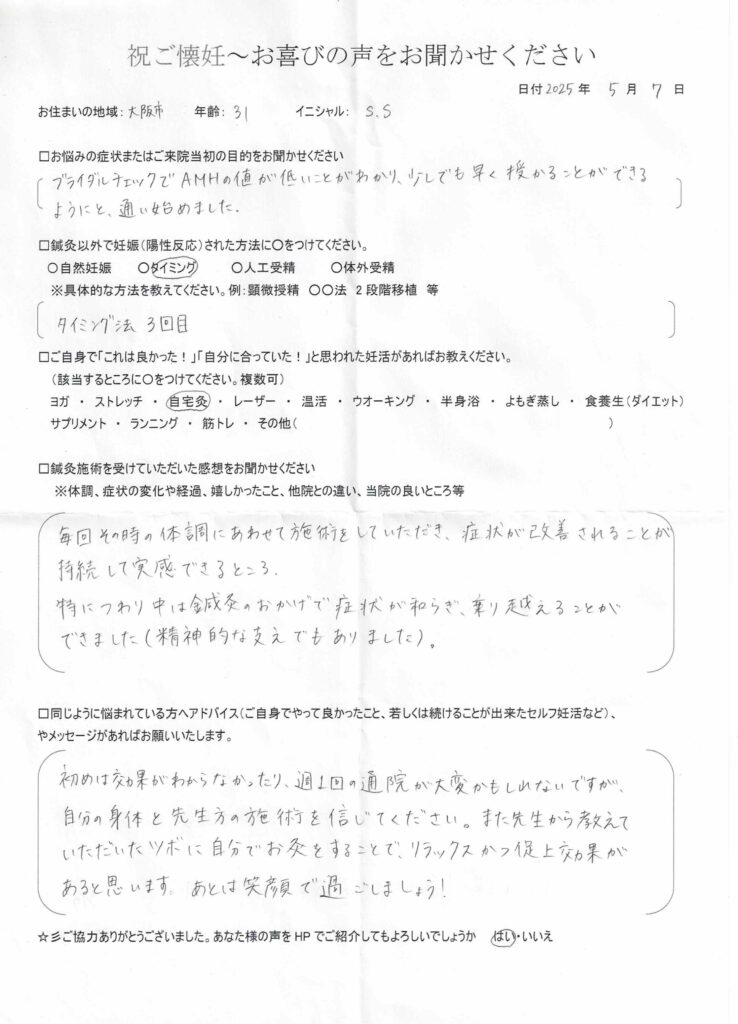 祝ご懐妊～お喜びの声をお聞かせください
日付 2025 年 5 月 7 日
お住まいの地域: 大阪市 年齢: 31 イニシャル: S.S
□お悩みの症状またはご来院当初の目的をお聞かせください
ブライダルチェックでAMHの値が低いことがわかり、少しでも早く授かることができる
ようにと、通い始めました.
□鍼灸以外で妊娠(陽性反応)された方法に〇をつけてください。
〇自然妊娠 〇タイミング 〇人工受精 〇体外受精
※具体的な方法を教えてください。例:顕微授精 〇〇法 2段階移植 等
タイミング法 3回目
□ご自身で「これは良かった!」「自分に合っていた!」と思われた妊活があればお教えください。
(該当するところに〇をつけてください。複数可)
ヨガ ・ ストレッチ ・ 自宅灸 ・ レーザー ・ 温活 ・ ウオーキング ・ 半身浴 ・ よもぎ蒸し ・ 食養生(ダイエット)
サプリメント ・ ランニング ・ 筋トレ ・ その他( )
□鍼灸施術を受けていただいた感想をお聞かせください
※体調、症状の変化や経過、嬉しかったこと、他院との違い、当院の良いところ等
毎回その時の体調にあわせて施術をしていただき、症状が改善されることが
持続して実感できるところ.
特につわり中は鍼灸のおかげで症状が和らぎ、乗り越えることが
できました(精神的な支えでもありました)。
□同じように悩まれている方へアドバイス(ご自身でやって良かったこと、若しくは続けることが出来たセルフ妊活など)、
やメッセージがあればお願いいたします。
初めは効果がわからなかったり、週1回の通院が大変かもしれないですが、
自分の身体と先生方の施術を信じてください。また先生から教えて
いただいたツボに自分でお灸をすることで、リラックスかつ促上効果が
あると思います。あとは笑顔で過ごしましょう!
☆彡ご協力ありがとうございました。あなた様の声をHPでご紹介してもよろしいでしょうか はい・いいえ